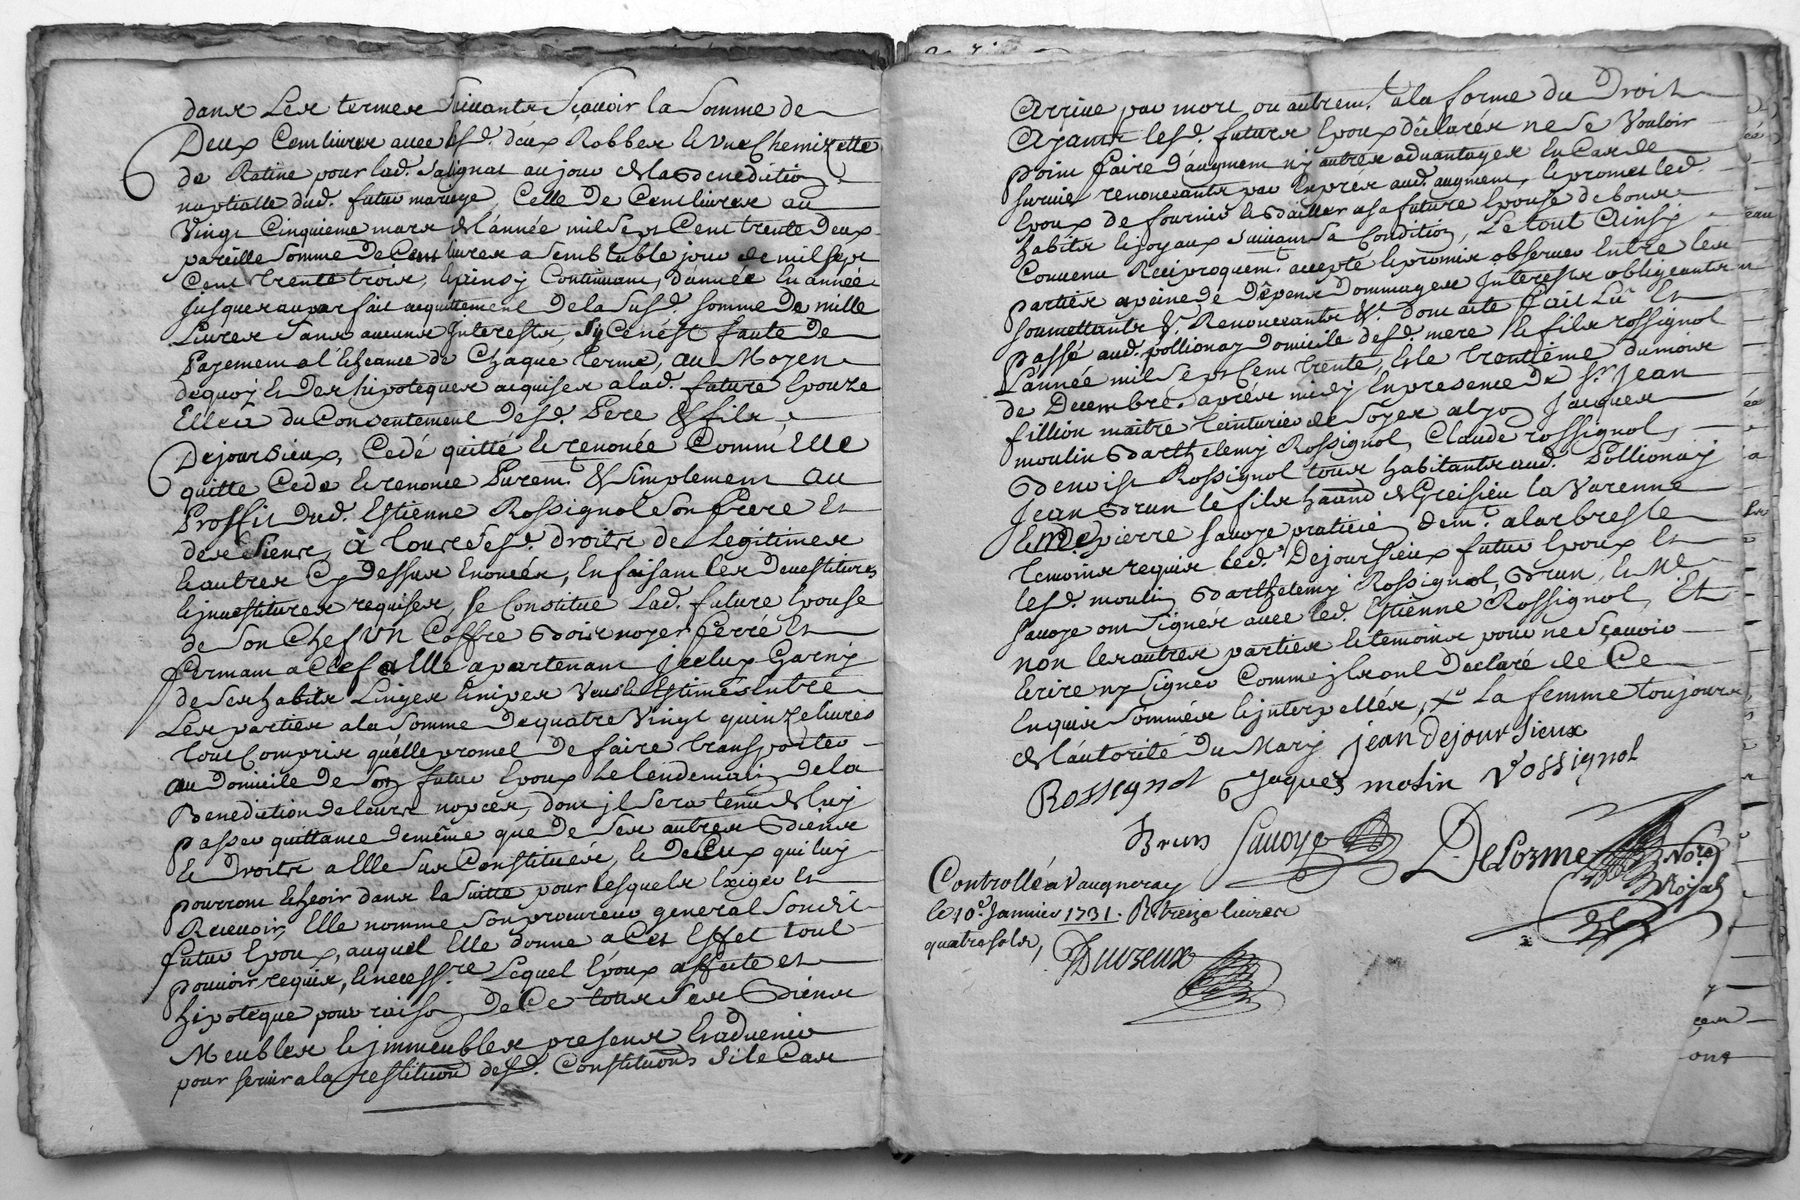 dans Les termes Suivants Sçauoir la Somme de
Deux Cent liures auec lesd. deux Robbes & vne Chemizette
de Ratine pour lad. Salignat au jour de la Benediction
nuptialle dud. futur mariage, Celle de Cent liures au
Vingt Cinquieme mars de l'année mil Sept Cent trente deux
pareille Somme de Cent liures a Semblable jour de mil Sept
Cent trente trois, & ainsy Continuant, d'année En année
Jusques au parfait acquittement de la Susd. Somme de mille
Liures Sans aucuns Interests, Sy Ce n'est faute de
Payement a l'Echeance de Chaque terme, Au Moyen
dequoy Et des hipoteques acquises a lad. future Epouze
Elle a du Consentement desd. Pere & fils
Dejoursieux, Cedé quitté & renoncé Comme Elle
quitte Cede & renonce Purem.t & Simplement au
Proffit dud. Estienne Rossignol Son frere Et
des Siens, à tous Sesd. droits de Legitimes
& autres Cy Dessus Enoncés, En faisant les Deuestitures
& inuestitures requises, Se Constitue Lad. future Epouse
de Son Chef Un Coffre Bois noyer ferré Et
fermant a Clef a Elle apartenant jcelux Garny
de Ses habits Linges & nipes Vus & Estimés Entre
Les parties a la Somme de quatre Vingt quinze liures
tout Compris qu'elle promet de faire transporter
au Domicile de Son futur Epoux Le lendemain de la
Benediction de leurs nopces, dont jl Sera tenu de luy
passer quittance de même que de Ses autres Biens
& Droits a Elle Sus Constitués, & de Ceux qui luy
pourront Echeoir dans la Suitte pour lesquels Exiger Et
Receuoir Elle nomme Son procureur general Sondit
futur Epoux, auquel Elle donne a Cet Effet tout
pouuoir requis, & necess.re Lequel Epoux affecte et
hipoteque pour raison de Ce tous Ses Biens
Meubles & jmmeubles presens & aduenir
pour Seruir a la restitution desd. Constitutions Si le Cas
Arriue par mort ou autrem.t a la forme du Droit
Ayants lesd. futurs Epoux déclarés ne Se Vouloir
point faire d'augment ny autres aduantages En Cas de
Suruie, renonceants par Exprés aud. augment, & promet led.
Epoux de fournir & Bailler a Sa future Epouse de bons
habits & joyaux Suiuant Sa Condition, Le tout Ainsy
Conuenu Reciproquem.t accepté & promis obseruer Entre les
parties a peine de dépens Dommages Interests obligeants
Soumettants &. Renonceants &. Dont acte Fait Lû Et
Passé aud. pollionay Domicile desd. mere & fils rossignol
L'année mil Sept Cent trente, Et le trentième du mois
de Decembre, aprés midy En presence de Sr. Jean
fillion maître teinturier de Soyes a lyon Jacques
moulin Barthelemy Rossignol, Claude rossignol,
Benoist Rossignol tous habitants aud. Pollionay
Jean Brun le fils habitand de Greisieu la Varenne
& Me. pierre Sauoye praticien dem.t a larbresle
temoins requis led. Dejoursieux futur Epoux Et
lesd. moulin Barthelemy Rossignol, Brun, & Me
Sauoye ont Signés auec led. Estienne Rossignol, Et
non les autres parties & temoins pour ne Sçauoir
Ecrire ny Signer Comme jls ont Declaré de Ce
Enquis Sommés & jnterpellés, La femme toujours
de l'autorité Du Mary jean dejour Sieux
Rossignol Jaques molin Rossignol
Brun Sauoye DeLorme No.re
Royal
Controllé a Vaugneray
le 10e. Januier 1731. R. treize liures
quatre sols,
Duvreux